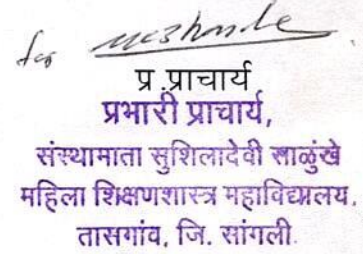 for
प्र.प्राचार्य
प्रभारी प्राचार्य,
संस्थामाता सुशिलादेवी साळुंखे
महिला शिक्षणशास्त्र महाविद्यालय,
तासगांव, जि. सांगली.